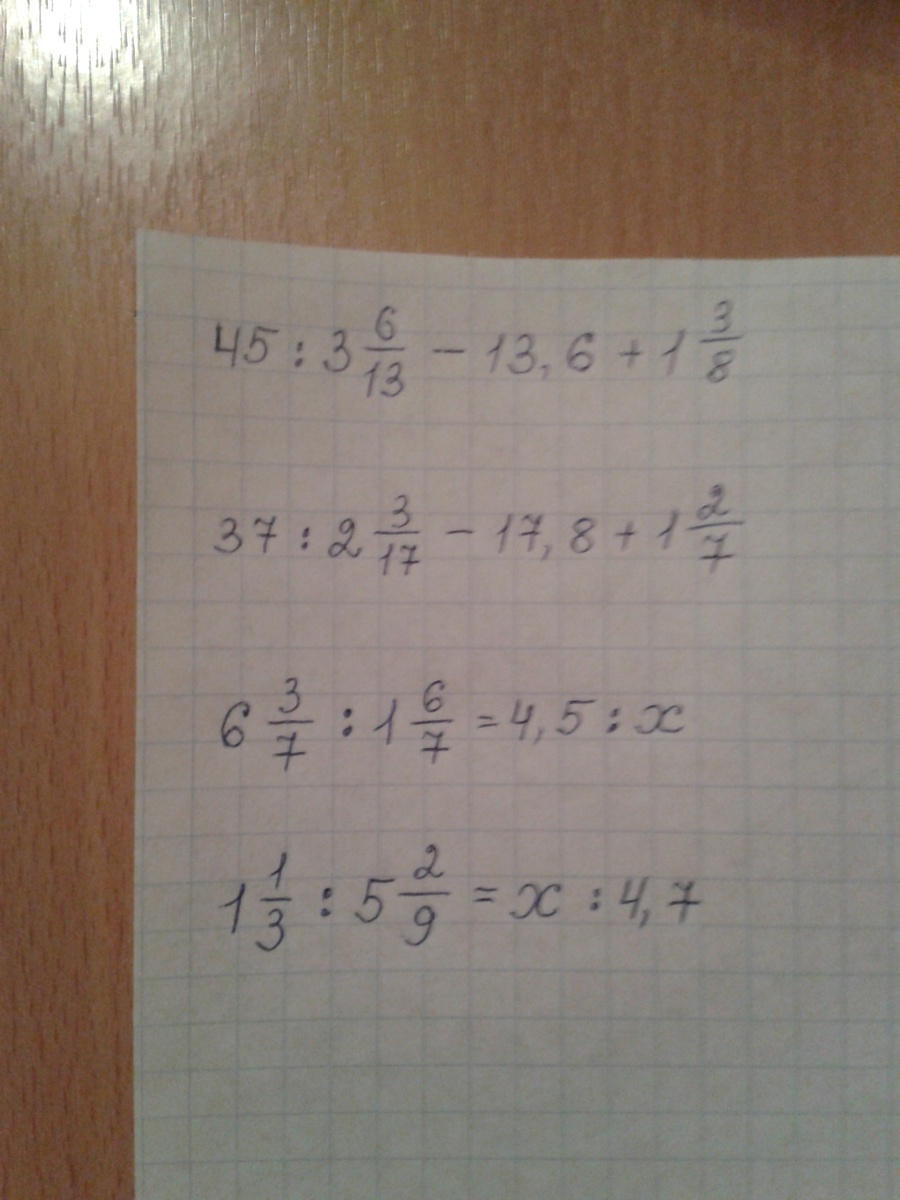 45 : 3 6/13 - 13,6 + 1 3/8
37 : 2 3/17 - 17,8 + 1 2/7
6 3/7 : 1 6/7 = 4,5 : x
1 1/3 : 5 2/9 = x : 4,7